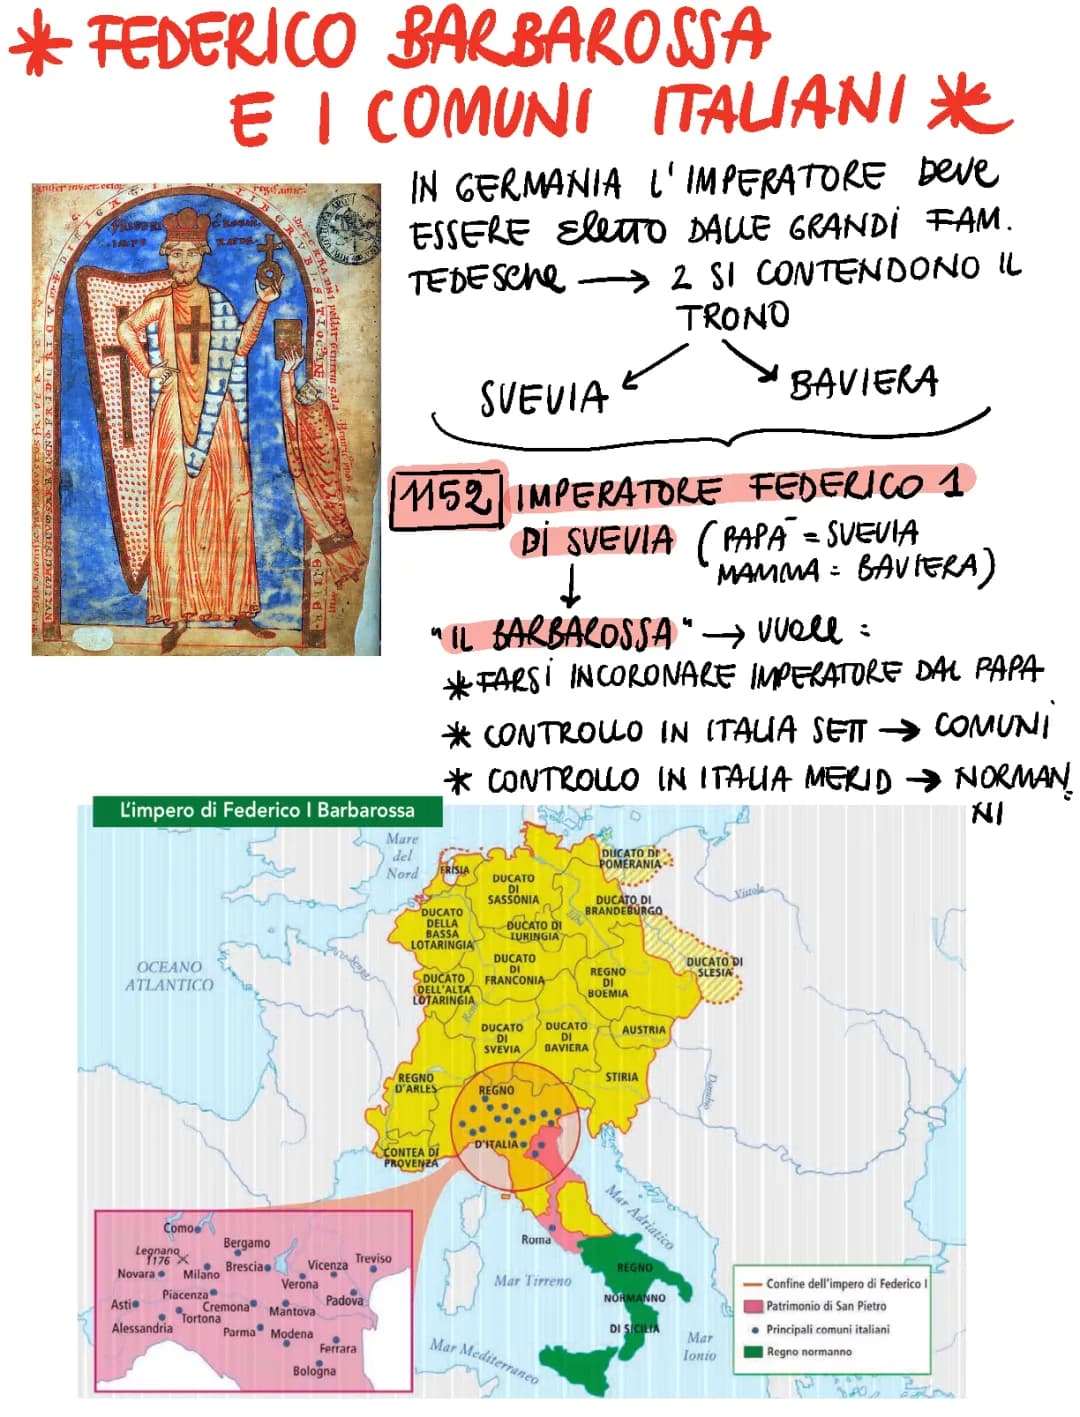 * FEDERICO BARBAROSSA
E I COMUNI ITALIANI *
IN GERMANIA L'IMPERATORE DEVE
ESSERE ELETTO DALLE GRANDI FAM.
TEDESCHE → 2 SI CONTENDONO IL
TRONO
SVEVIA
BAVIERA
1152 IMPERATORE FEDERICO 1
DI SVEVIA ( PAPÀ = SVEVIA
MAMMA = BAVIERA)
"IL BARBAROSSA" → VUOLE :
* FARSI INCORONARE IMPERATORE DAL PAPA
* CONTROLLO IN ITALIA SETT → COMUNI
* CONTROLLO IN ITALIA MERID → NORMAN
NI
L'impero di Federico I Barbarossa
Mare
del
Nord
FRISIA
DUCATO
DI
SASSONIA
DUCATO DI
POMERANIA
DUCATO DI
BRANDEBURGO
Elba
Vistola
DUCATO
DELLA
BASSA
LOTARINGIA
DUCATO DI
TURINGIA
DUCATO
DI
FRANCONIA
DUCATO DI
SLESIA
OCEANO
ATLANTICO
Senna
DUCATO
DELL'ALTA
LOTARINGIA
Reno
REGNO
DI
BOEMIA
DUCATO
DI
SVEVIA
DUCATO
DI
BAVIERA
AUSTRIA
STIRIA
Danubio
REGNO
D'ARLES
REGNO
D'ITALIA
CONTEA DI
PROVENZA
Mar Adriatico
Roma
Mar Tirreno
REGNO
NORMANNO
DI SICILIA
Mar
Ionio
Mar Mediterraneo
Como
Legnano
1176
Bergamo
Novara
Milano
Brescia
Vicenza
Treviso
Verona
Asti
Piacenza
Cremona
Mantova
Padova
Tortona
Alessandria
Parma
Modena
Ferrara
Bologna
Confine dell'impero di Federico I
Patrimonio di San Pietro
Principali comuni italiani
Regno normanno